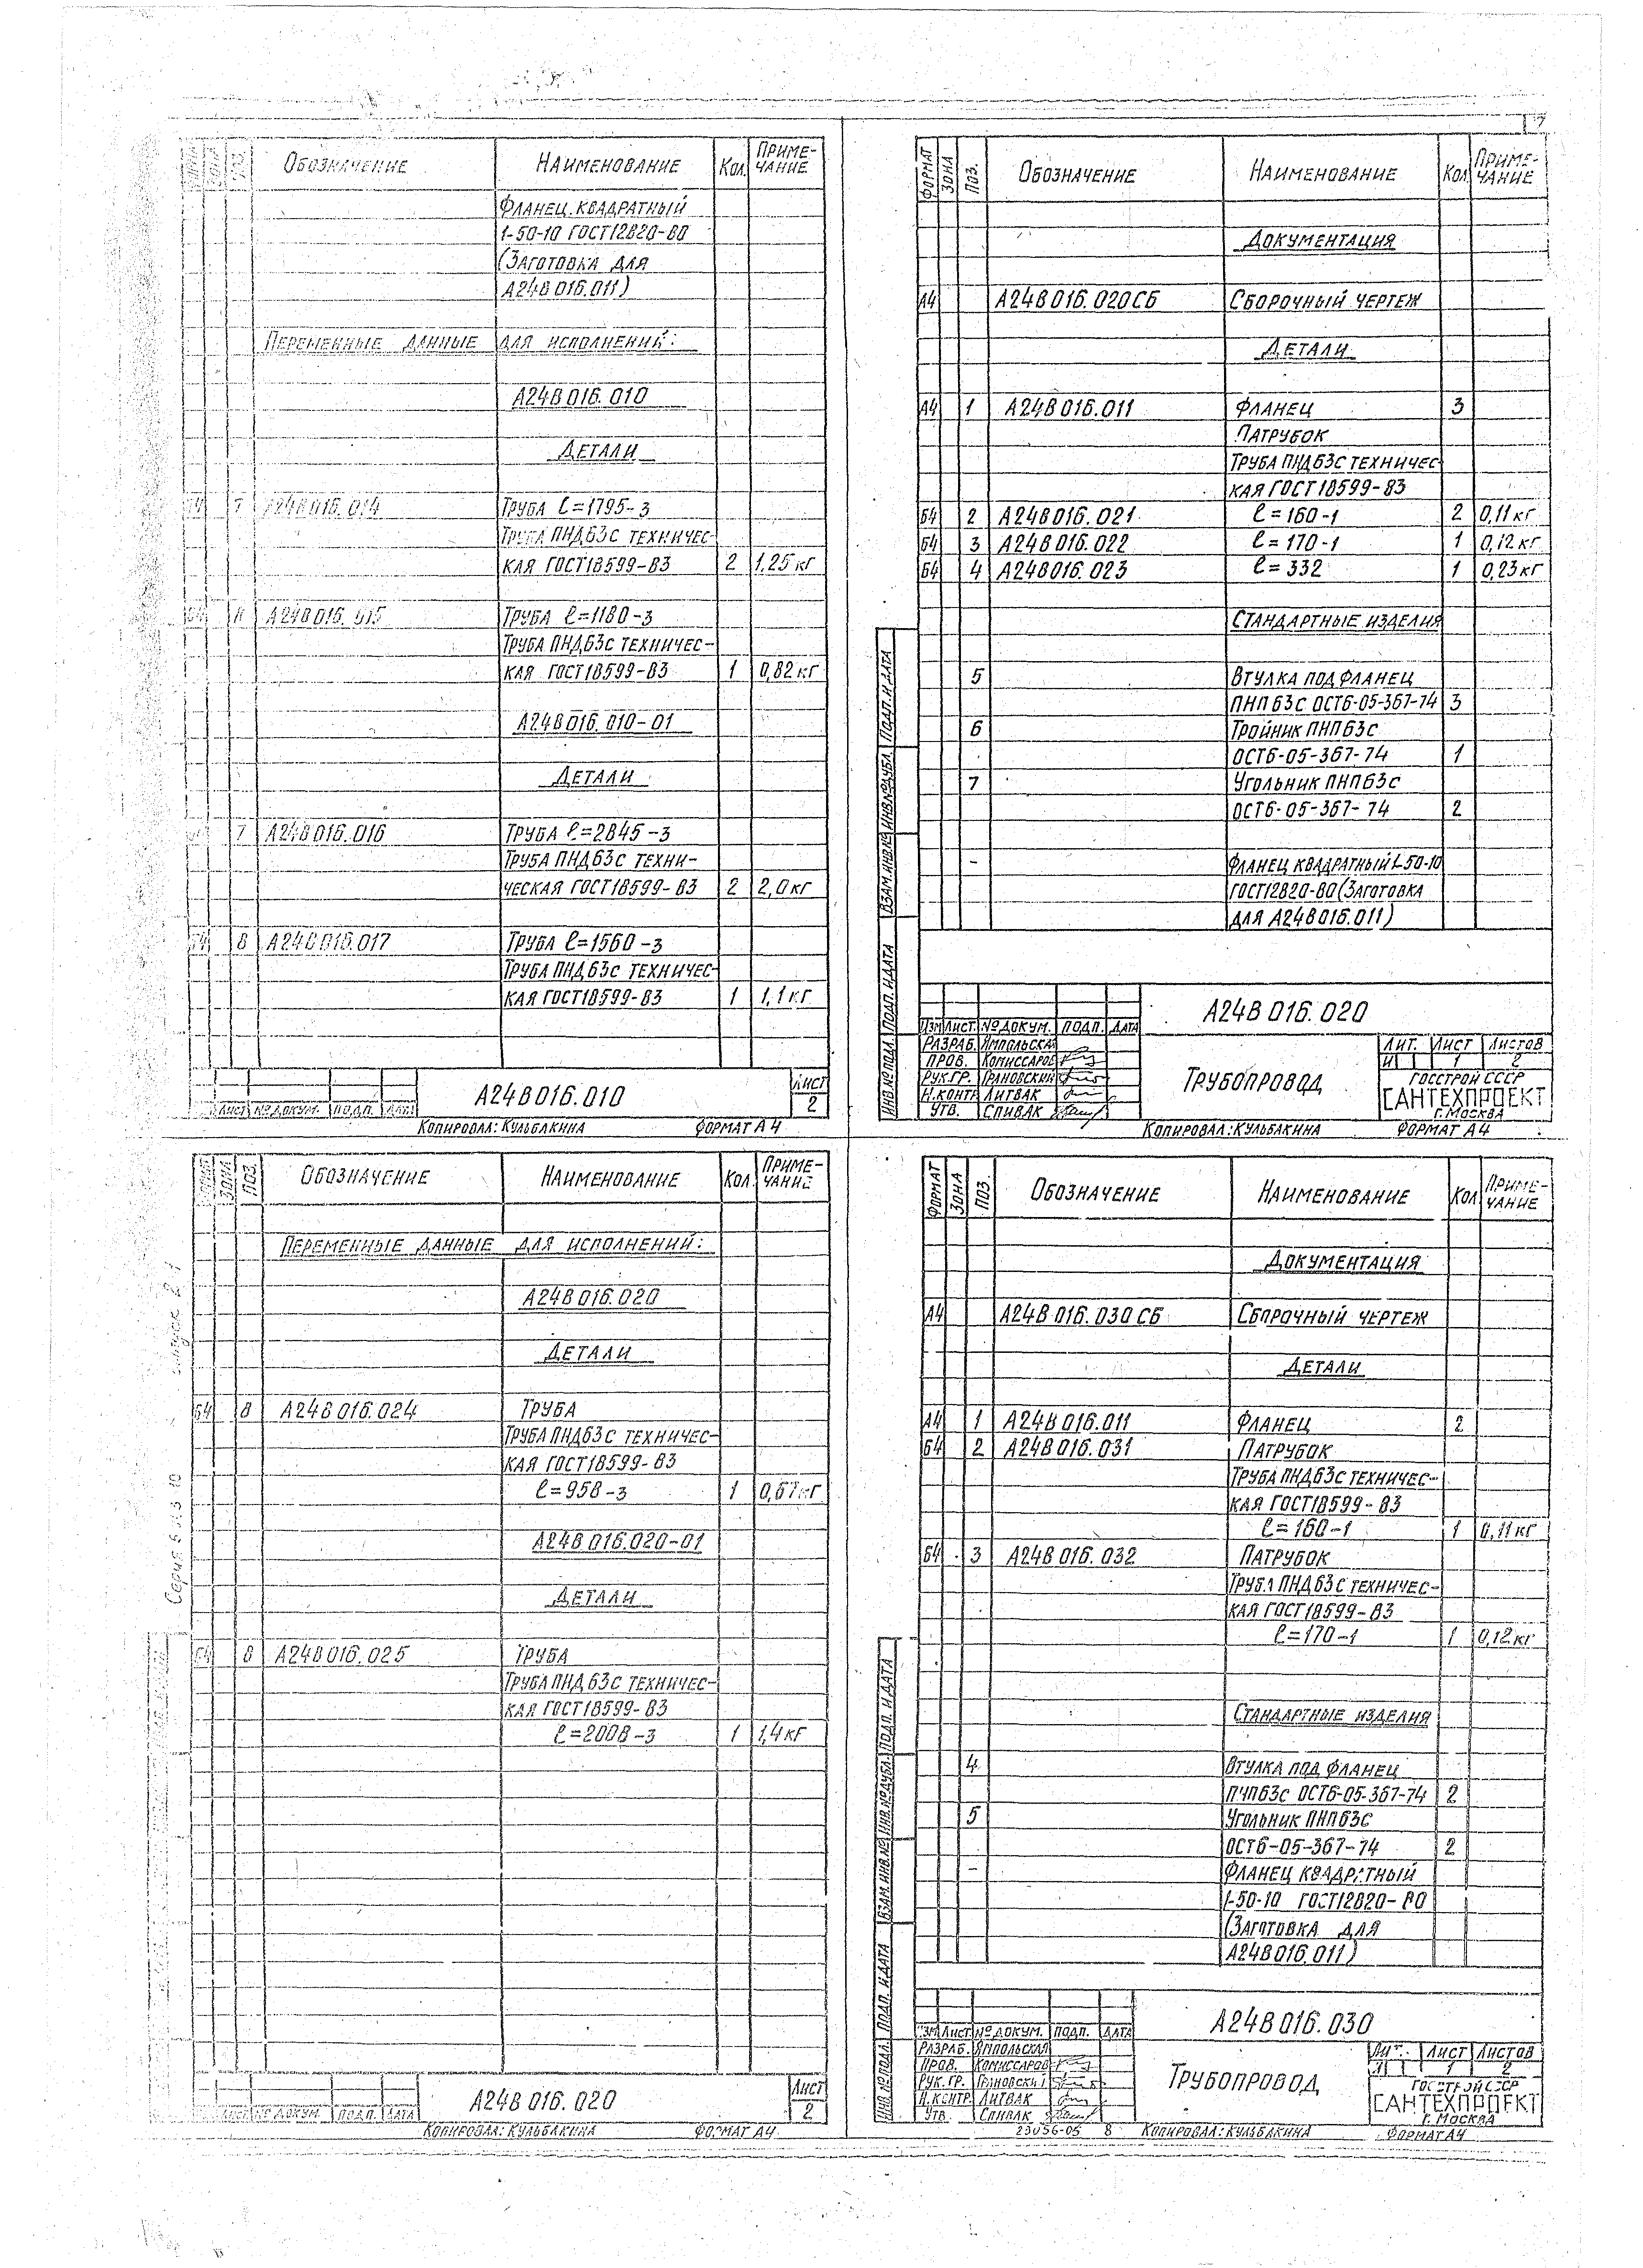 7
ПОЗ. ОБОЗНАЧЕНИЕ НАИМЕНОВАНИЕ КОЛ. ПРИМЕ-
ЧАНИЕ
ФЛАНЕЦ КВАДРАТНЫЙ
1-50-10 ГОСТ 12820-80
(ЗАГОТОВКА ДЛЯ
А24В 016.011)
ПЕРЕМЕННЫЕ ДАННЫЕ ДЛЯ ИСПОЛНЕНИЙ:
А24В 016.010
ДЕТАЛИ
7 А24В 016.014 ТРУБА ℓ=1795-3
ТРУБА ПНД 63С ТЕХНИЧЕС-
КАЯ ГОСТ 18599-83 2 1,25 кг
Б4 8 А24В 016.015 ТРУБА ℓ=1180-3
ТРУБА ПНД 63С ТЕХНИЧЕС-
КАЯ ГОСТ 18599-83 1 0,82 кг
А24В 016.010-01
ДЕТАЛИ
7 А24В 016.016 ТРУБА ℓ=2845-3
ТРУБА ПНД 63С ТЕХНИ-
ЧЕСКАЯ ГОСТ 18599-83 2 2,0 кг
Б4 8 А24В 016.017 ТРУБА ℓ=1560-3
ТРУБА ПНД 63С ТЕХНИЧЕС-
КАЯ ГОСТ 18599-83 1 1,1 кг
А24В 016.010 ЛИСТ
2
ЛИСТ № ДОКУМ. ПОДП. ДАТА
КОПИРОВАЛ: КУЛЬБАКИНА ФОРМАТ А4
ФОРМАТ ЗОНА ПОЗ. ОБОЗНАЧЕНИЕ НАИМЕНОВАНИЕ КОЛ ПРИМЕ-
ЧАНИЕ
ДОКУМЕНТАЦИЯ
А4 А24В 016.020 СБ СБОРОЧНЫЙ ЧЕРТЕЖ
ДЕТАЛИ
А4 1 А24В 016.011 ФЛАНЕЦ 3
ПАТРУБОК
ТРУБА ПНД 63С ТЕХНИЧЕС-
КАЯ ГОСТ 18599-83
Б4 2 А24В 016.021 ℓ=160-1 2 0,11 кг
Б4 3 А24В 016.022 ℓ=170-1 1 0,12 кг
Б4 4 А24В 016.023 ℓ=332 1 0,23 кг
СТАНДАРТНЫЕ ИЗДЕЛИЯ
5 ВТУЛКА ПОД ФЛАНЕЦ
ПНП 63С ОСТ6-05-367-74 3
6 ТРОЙНИК ПНП 63С
ОСТ6-05-367-74 1
7 УГОЛЬНИК ПНП 63С
ОСТ6-05-367-74 2
- ФЛАНЕЦ КВАДРАТНЫЙ 1-50-10
ГОСТ 12820-80 (ЗАГОТОВКА
ДЛЯ А24В 016.011)
ИНВ. № ПОДЛ. ПОДП. И ДАТА ВЗАМ. ИНВ. № ИНВ. № ДУБЛ. ПОДП. И ДАТА
А24В 016.020
ИЗМ ЛИСТ. № ДОКУМ. ПОДП. ДАТА
РАЗРАБ. ЯМПОЛЬСКАЯ
ПРОВ. КОМИССАРОВ
РУК. ГР. ГРАНОВСКИЙ
Н. КОНТР. ЛИТВАК
УТВ. СПИВАК
ТРУБОПРОВОД
ЛИТ. ЛИСТ ЛИСТОВ
И 1 2
ГОССТРОЙ СССР
САНТЕХПРОЕКТ
Г. МОСКВА
КОПИРОВАЛ: КУЛЬБАКИНА ФОРМАТ А4
ЗОНА ПОЗ. ОБОЗНАЧЕНИЕ НАИМЕНОВАНИЕ КОЛ. ПРИМЕ-
ЧАНИЕ
ПЕРЕМЕННЫЕ ДАННЫЕ ДЛЯ ИСПОЛНЕНИЙ:
А24В 016.020
ДЕТАЛИ
Б4 8 А24В 016.024 ТРУБА
ТРУБА ПНД 63С ТЕХНИЧЕС-
КАЯ ГОСТ 18599-83
ℓ=958-3 1 0,67 кг
А24В 016.020-01
ДЕТАЛИ
Б4 8 А24В 016.025 ТРУБА
ТРУБА ПНД 63С ТЕХНИЧЕС-
КАЯ ГОСТ 18599-83
ℓ=2008-3 1 1,4 кг
Серия
А24В 016.020 ЛИСТ
2
ЛИСТ № ДОКУМ. ПОДП. ДАТА
КОПИРОВАЛ: КУЛЬБАКИНА ФОРМАТ А4
ФОРМАТ ЗОНА ПОЗ. ОБОЗНАЧЕНИЕ НАИМЕНОВАНИЕ КОЛ ПРИМЕ-
ЧАНИЕ
ДОКУМЕНТАЦИЯ
А4 А24В 016.030 СБ СБОРОЧНЫЙ ЧЕРТЕЖ
ДЕТАЛИ
А4 1 А24В 016.011 ФЛАНЕЦ 2
Б4 2 А24В 016.031 ПАТРУБОК
ТРУБА ПНД 63С ТЕХНИЧЕС-
КАЯ ГОСТ 18599-83
ℓ=160-1 1 0,11 кг
Б4 3 А24В 016.032 ПАТРУБОК
ТРУБА ПНД 63С ТЕХНИЧЕС-
КАЯ ГОСТ 18599-83
ℓ=170-1 1 0,12 кг
СТАНДАРТНЫЕ ИЗДЕЛИЯ
4 ВТУЛКА ПОД ФЛАНЕЦ
ПНП 63С ОСТ6-05-367-74 2
5 УГОЛЬНИК ПНП 63С
ОСТ6-05-367-74 2
- ФЛАНЕЦ КВАДРАТНЫЙ
1-50-10 ГОСТ 12820-80
(ЗАГОТОВКА ДЛЯ
А24В 016.011)
ИНВ. № ПОДЛ. ПОДП. И ДАТА ВЗАМ. ИНВ. № ИНВ. № ДУБЛ. ПОДП. И ДАТА
А24В 016.030
ИЗМ ЛИСТ. № ДОКУМ. ПОДП. ДАТА
РАЗРАБ. ЯМПОЛЬСКАЯ
ПРОВ. КОМИССАРОВ
РУК. ГР. ГРАНОВСКИЙ
Н. КОНТР. ЛИТВАК
УТВ. СПИВАК
ТРУБОПРОВОД
ЛИТ. ЛИСТ ЛИСТОВ
1 2
ГОССТРОЙ СССР
САНТЕХПРОЕКТ
Г. МОСКВА
23056-05 8 КОПИРОВАЛ: КУЛЬБАКИНА ФОРМАТ А4